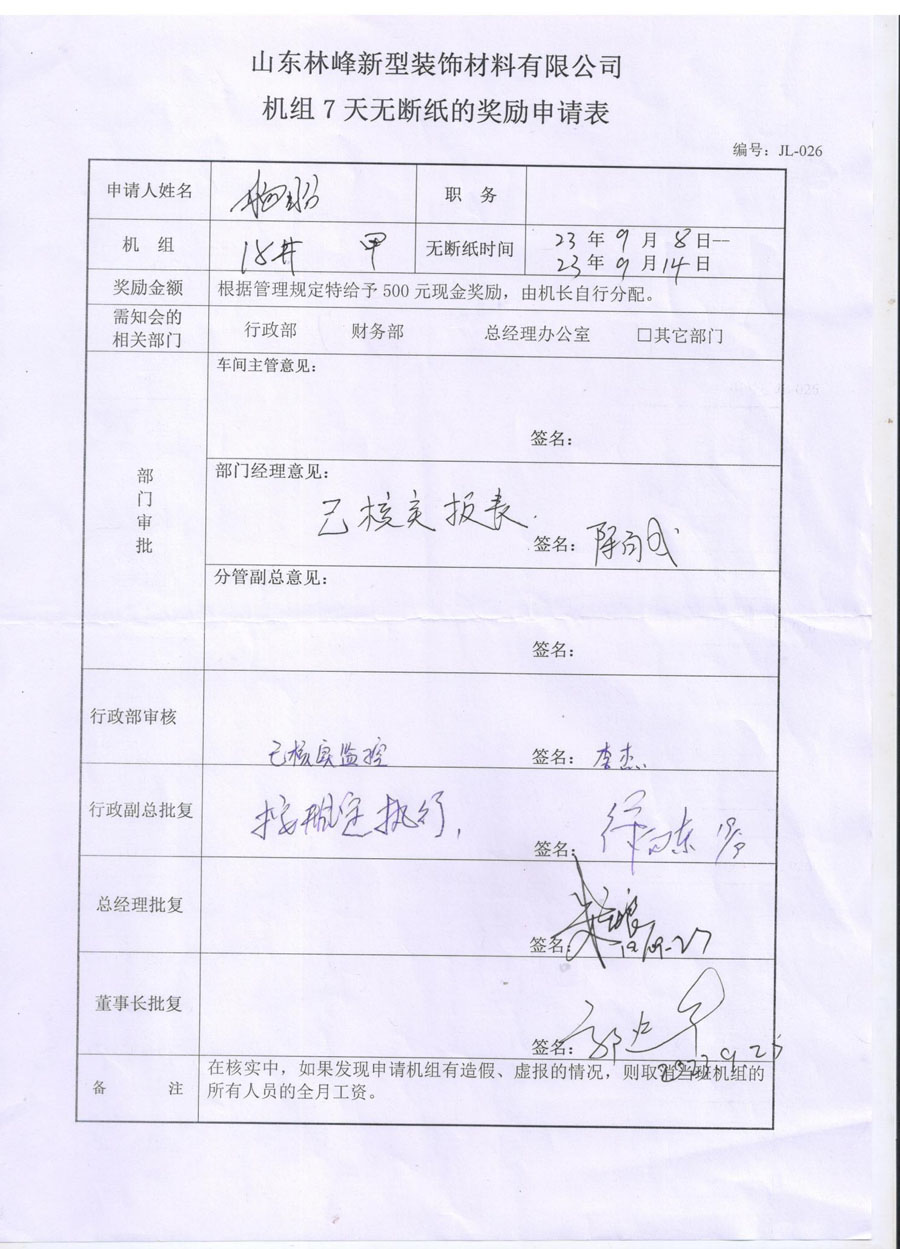 山东林峰新型装饰材料有限公司
机组 7 天无断纸的奖励申请表
编号：JL-026
申请人姓名 职 务
机 组 甲 无断纸时间 23 年 9 月 8 日--
23 年 9 月 14 日
奖励金额 根据管理规定特给予 500 元现金奖励，由机长自行分配。
需知会的
相关部门 行政部 财务部 总经理办公室 □其它部门
部门审批
车间主管意见：
签名：
部门经理意见：
已核实报表.
签名：
分管副总意见：
签名：
行政部审核
已核实监控 签名：李杰
行政副总批复 按规定执行, 签名：
总经理批复 签名：
董事长批复 签名：
备 注 在核实中，如果发现申请机组有造假、虚报的情况，则取消当班机组的
所有人员的全月工资。